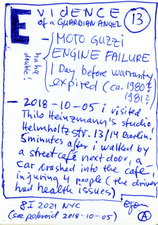 EVIDENCE
OF A GUARDIAN ANGEL
13
- MOTO GUZZI
ENGINE FAILURE
1 Day before warranty
expired (ca. 1980?
1981?)
- 2018-10-05 i visited
Thilo Heinzmann's studio
Helmholtz str. 13/14 Berlin.
5 minutes after i walked by
a street café next door, a
car crashed into the café
injuring 4 people (the driver
had health issues)
8I 2021 NYC
(see polaroid 2018-10-05)
A